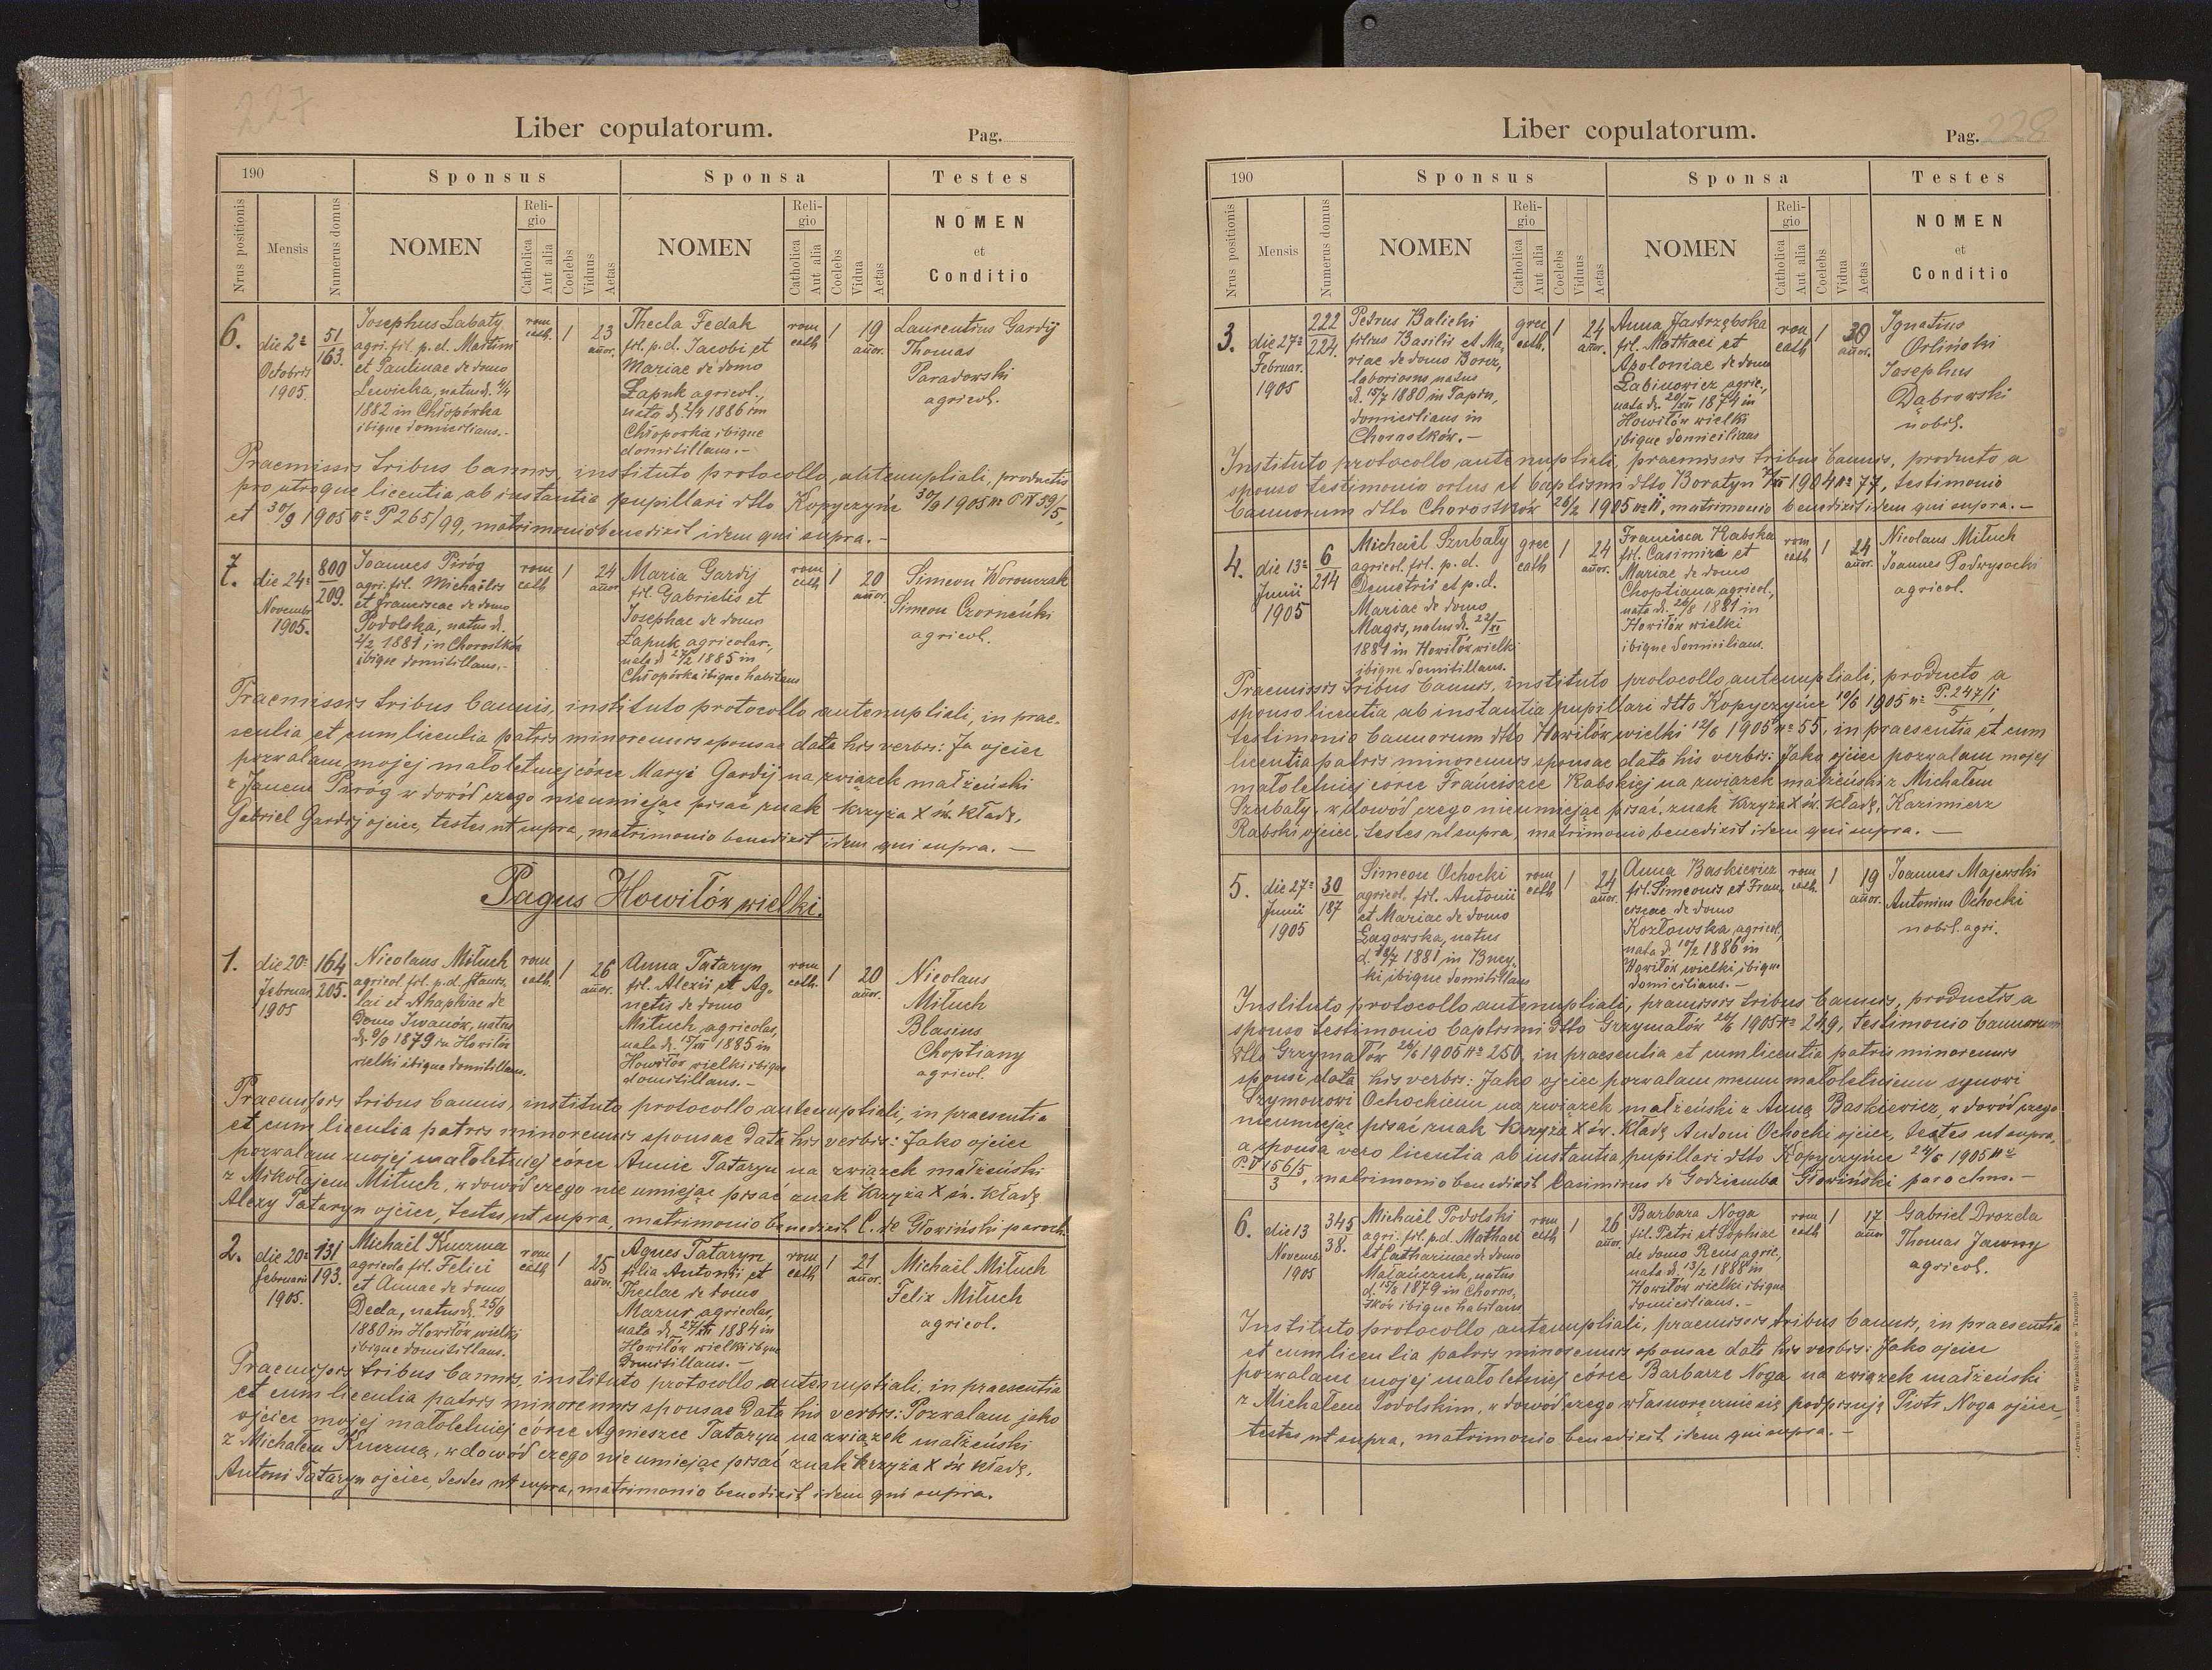 227
Liber copulatorum.
Pag.
190
Sponsus
Sponsa
Testes
Nrus positionis
Mensis
Numerus domus
NOMEN
Religio
Catholica
Aut alia
Coelebs
Viduus
Aetas
NOMEN
Religio
Catholica
Aut alia
Coelebs
Vidua
Aetas
NOMEN
et
Conditio
6.
die 2a
Octobris
1905.
51
163.
Josephus Labaty
agri. fil. p. d. Martini
et Paulinae de domo
Lewicka, natus d.
1882 in Chłopówka
ibique domicilians.-
rom
cath.
1
23
annor.
Thecla Fedak
fil. p. d. Jacobi et
Mariae de domo
Łapuk agricol.,
nata d. 1886 in
Chłopówka ibique
domitillans.-
rom
cath
1
19
annor.
Laurentius Gardij
Thomas
Paradowski
agricol.
Praemissis tribus bannis, instituto protocollo antenuptiali, productis
pro utroque licentia ab instantia pupillari dtto Kopyczyńce 30/9 1905 nr P IV 59/5,
et 30/9 1905 nr P 265/99, matrimonio benedixit idem qui supra.-
7.
die 24a
Novembr.
1905.
800
209.
Joannes Piróg
agri. fil. Michaëlis
et Franciscae de domo
Podolska, natus d.
2/2 1881 in Chorostków
ibique domitillans.-
rom
cath
1
24
annor.
Maria Gardij
fil. Gabrielis et
Josephae de domo
Łapuk agricolar.,
nata d. 1885 in
Chłopówka ibique habitans
rom
cath
1
20
annor.
Simeon Woronczak
Simeon Czorneńki
agricol.
Praemissis tribus bannis, instituto protocollo antenuptiali, in prae-
sentia et cum licentia patris minorennis sponsae data his verbis: Ja ojciec
pozwalam mojej małoletniej córce Maryi Gardij na związek małżeński
z Janem Piróg w dowód czego nie umiejąc pisać znak Krzyża X św. Kładę,
Gabriel Gardij ojciec, testes ut supra, matrimonio benedixit idem qui supra. —
Pagus Howiłów wielki.
1.
die 20a
Februar.
1905
164
205.
Nicolaus Miluch
agricol. fil. p. d. Stanis-
lai et Ahaphiae de
domo Iwanów, natus
d. 9/9 1879 in Howiłów
wielki ibique domitillans.
rom
cath.
1
26
annor.
Anna Tataryn
fil. Alexii et Ag-
netis de domo
Miluch, agricolar,
nata d. 15/XII 1885 in
Howiłów wielki ibique
domitillans.-
rom
cath.
1
20
annor.
Nicolaus
Miluch
Blasius
Choptiany
agricol.
Praemissis tribus bannis, instituto protocollo antenuptiali, in praesentia
et cum licentia patris minorennis sponsae data his verbis: Jako ojciec
pozwalam mojej małoletniej córce Annie Tataryn na związek małżeński
z Mikołajem Miluch, w dowód czego nie umiejąc pisać znak Krzyża X św. Kładę
Alexy Tataryn ojciec, testes ut supra, matrimonio benedixit C. de Głowiński paroch.
2.
die 20a
Februarii
1905.
131
193.
Michaël Kuczma
agricola fil. Felici
et Annae de domo
Deda, natus d. 25/9
1880 in Howiłów wielki
ibique domitillans.
rom
cath
1
25
annor.
Agnes Tataryn
filia Antonii et
Theclae de domo
Mazur, agricolar,
nata d. 27/XII 1884 in
Howiłów wielki ibique
domitillans. —
rom
cath
1
21
annor.
Michaël Miluch
Felix Miluch
agricol.
Praemissis tribus bannis, instituto protocollo antenuptiali, in praesentia
et cum licentia patris minorennis sponsae data his verbis: Pozwalam jako
ojciec mojej małoletniej córce Agnieszce Tataryn na związek małżeński
z Michałem Kuczmą, w dowód czego nie umiejąc pisać znak Krzyża X św. Kładę,
Antoni Tataryn ojciec, testes ut supra, matrimonio benedixit idem qui supra.
Liber copulatorum.
Pag. 228
190
Sponsus
Sponsa
Testes
Nrus positionis
Mensis
Numerus domus
NOMEN
Religio
Catholica
Aut alia
Coelebs
Viduus
Aetas
NOMEN
Religio
Catholica
Aut alia
Coelebs
Vidua
Aetas
NOMEN
et
Conditio
3.
die 27a
Februar.
1905
222
224.
Petrus Balicki
filius Basilii et Ma-
riae de domo Borcz,
laboriosus natus
d. 15/7 1880 in
domicilians in
Chorostków.-
grec
cath.
1
24
annor.
Anna Jastrzębska
fil. Mathaei et
Apoloniae de domo
Łabinowicz agric.,
nata d. 20/XII 1874 in
Howiłów wielki
ibique domicilians
rom
cath
1
30
annor.
Ignatius
Orliński
Josephus
Dąbrowski
nobil.
Instituto protocollo antenuptiali, praemissis tribus bannis, producto a
sponso testimonio ortus et baptismi dtto Boratyn 1904 nr 77, testimonio
bannorum dtto Chorostków 26/2 1905 matrimonio benedixit idem qui supra.-
4.
die 13a
Junii
1905
6
214
Michaël Szubaty
agricol. fil. p. d.
Demetrii et p. d.
Mariae de domo
Magis, natus d. 22/XI
1881 in Howiłów wielki
ibique domitillans.
grec
cath
1
24
annor.
Francisca Rabska
fil. Casimiri et
Mariae de domo
Choptiana agricol.,
nata d. 26/8 1881 in
Howiłów wielki
ibique domicilians.
rom
cath
1
24
annor.
Nicolaus Miluch
Joannes Podwysocki
agricol.
Praemissis tribus bannis, instituto protocollo antenuptiali, producto a
sponso licentia ab instantia pupillari dtto Kopyczyńce 10/6 1905 nr P. 247/1/5,
testimonio bannorum dtto Howiłów wielki 12/6 1905 nr 55, in praesentia et cum
licentia patris minorennis sponsae data his verbis: Jako ojciec pozwalam mojej
małoletniej córce Franciszce Rabskiej na związek małżeński z Michałem
Szubaty, w dowód czego nieumiejąc pisać, znak Krzyża X św. Kładę, Kazimierz
Rabski ojciec, testes ut supra, matrimonio benedixit idem qui supra. —
5.
die 27a
Junii
1905
30
187
Simeon Ochocki
agricol. fil. Antonii
et Mariae de domo
Łagowska, natus
d. 18/7 1881 in Bucy-
ki ibique domitillans
rom
cath
1
24
annor.
Anna Baskiewicz
fil. Simeonis et Fran-
ciscae de domo
Kozłowska, agricol.,
nata d. 10/2 1886 in
Howiłów wielki, ibique
domicilians.-
rom
cath.
1
19
annor.
Joannes Majewski
Antonius Ochocki
nobil. agri.
Instituto protocollo antenuptiali, praemissis tribus bannis, productis a
sponso testimonio baptismi dtto Grzymałów 26/6 1905 nr 249, testimonio bannorum
dtto Grzymałów 26/6 1905 nr 250, in praesentia et cum licentia patris minorennis
sponsi data his verbis: Jako ojciec pozwalam memu małoletniemu synowi
Szymonowi Ochockiemu na związek małżeński z Anną Baskiewicz, w dowód czego
nieumiejąc pisać znak Krzyża X św. Kładę Antoni Ochocki ojciec, testes ut supra,
a sponsa vero licentia ab instantia pupillari dtto Kopyczyńce 24/6 1905 nr
P. V 156/5/3, matrimonio benedixit Casimirus de Godziemba Głowiński parochus.-
6.
die 13
Novembr.
1905
345
38.
Michaël Podolski
agri. fil. p. d. Mathaei
et Catharinae de domo
Małańczuk, natus
d. 15/8 1879 in Choros-
tków ibique habitans
rom
cath
1
26
annor.
Barbara Noga
fil. Petri et Sophiae
de domo Reus, agric.,
nata d. 13/2 1888 in
Howiłów wielki ibique
domicilians.-
rom
cath.
1
17
annor
Gabriel Drozda
Thomas Jawny
agricol.
Instituto protocollo antenuptiali, praemissis tribus bannis, in praesentia
et cum licentia patris minorennis sponsae dati his verbis: Jako ojciec
pozwalam mojej małoletniej córce Barbarze Noga na związek małżeński
z Michałem Podolskim, w dowód czego własnoręcznie się podpisuję Piotr Noga ojciec,
testes ut supra, matrimonio benedixit idem qui supra. —